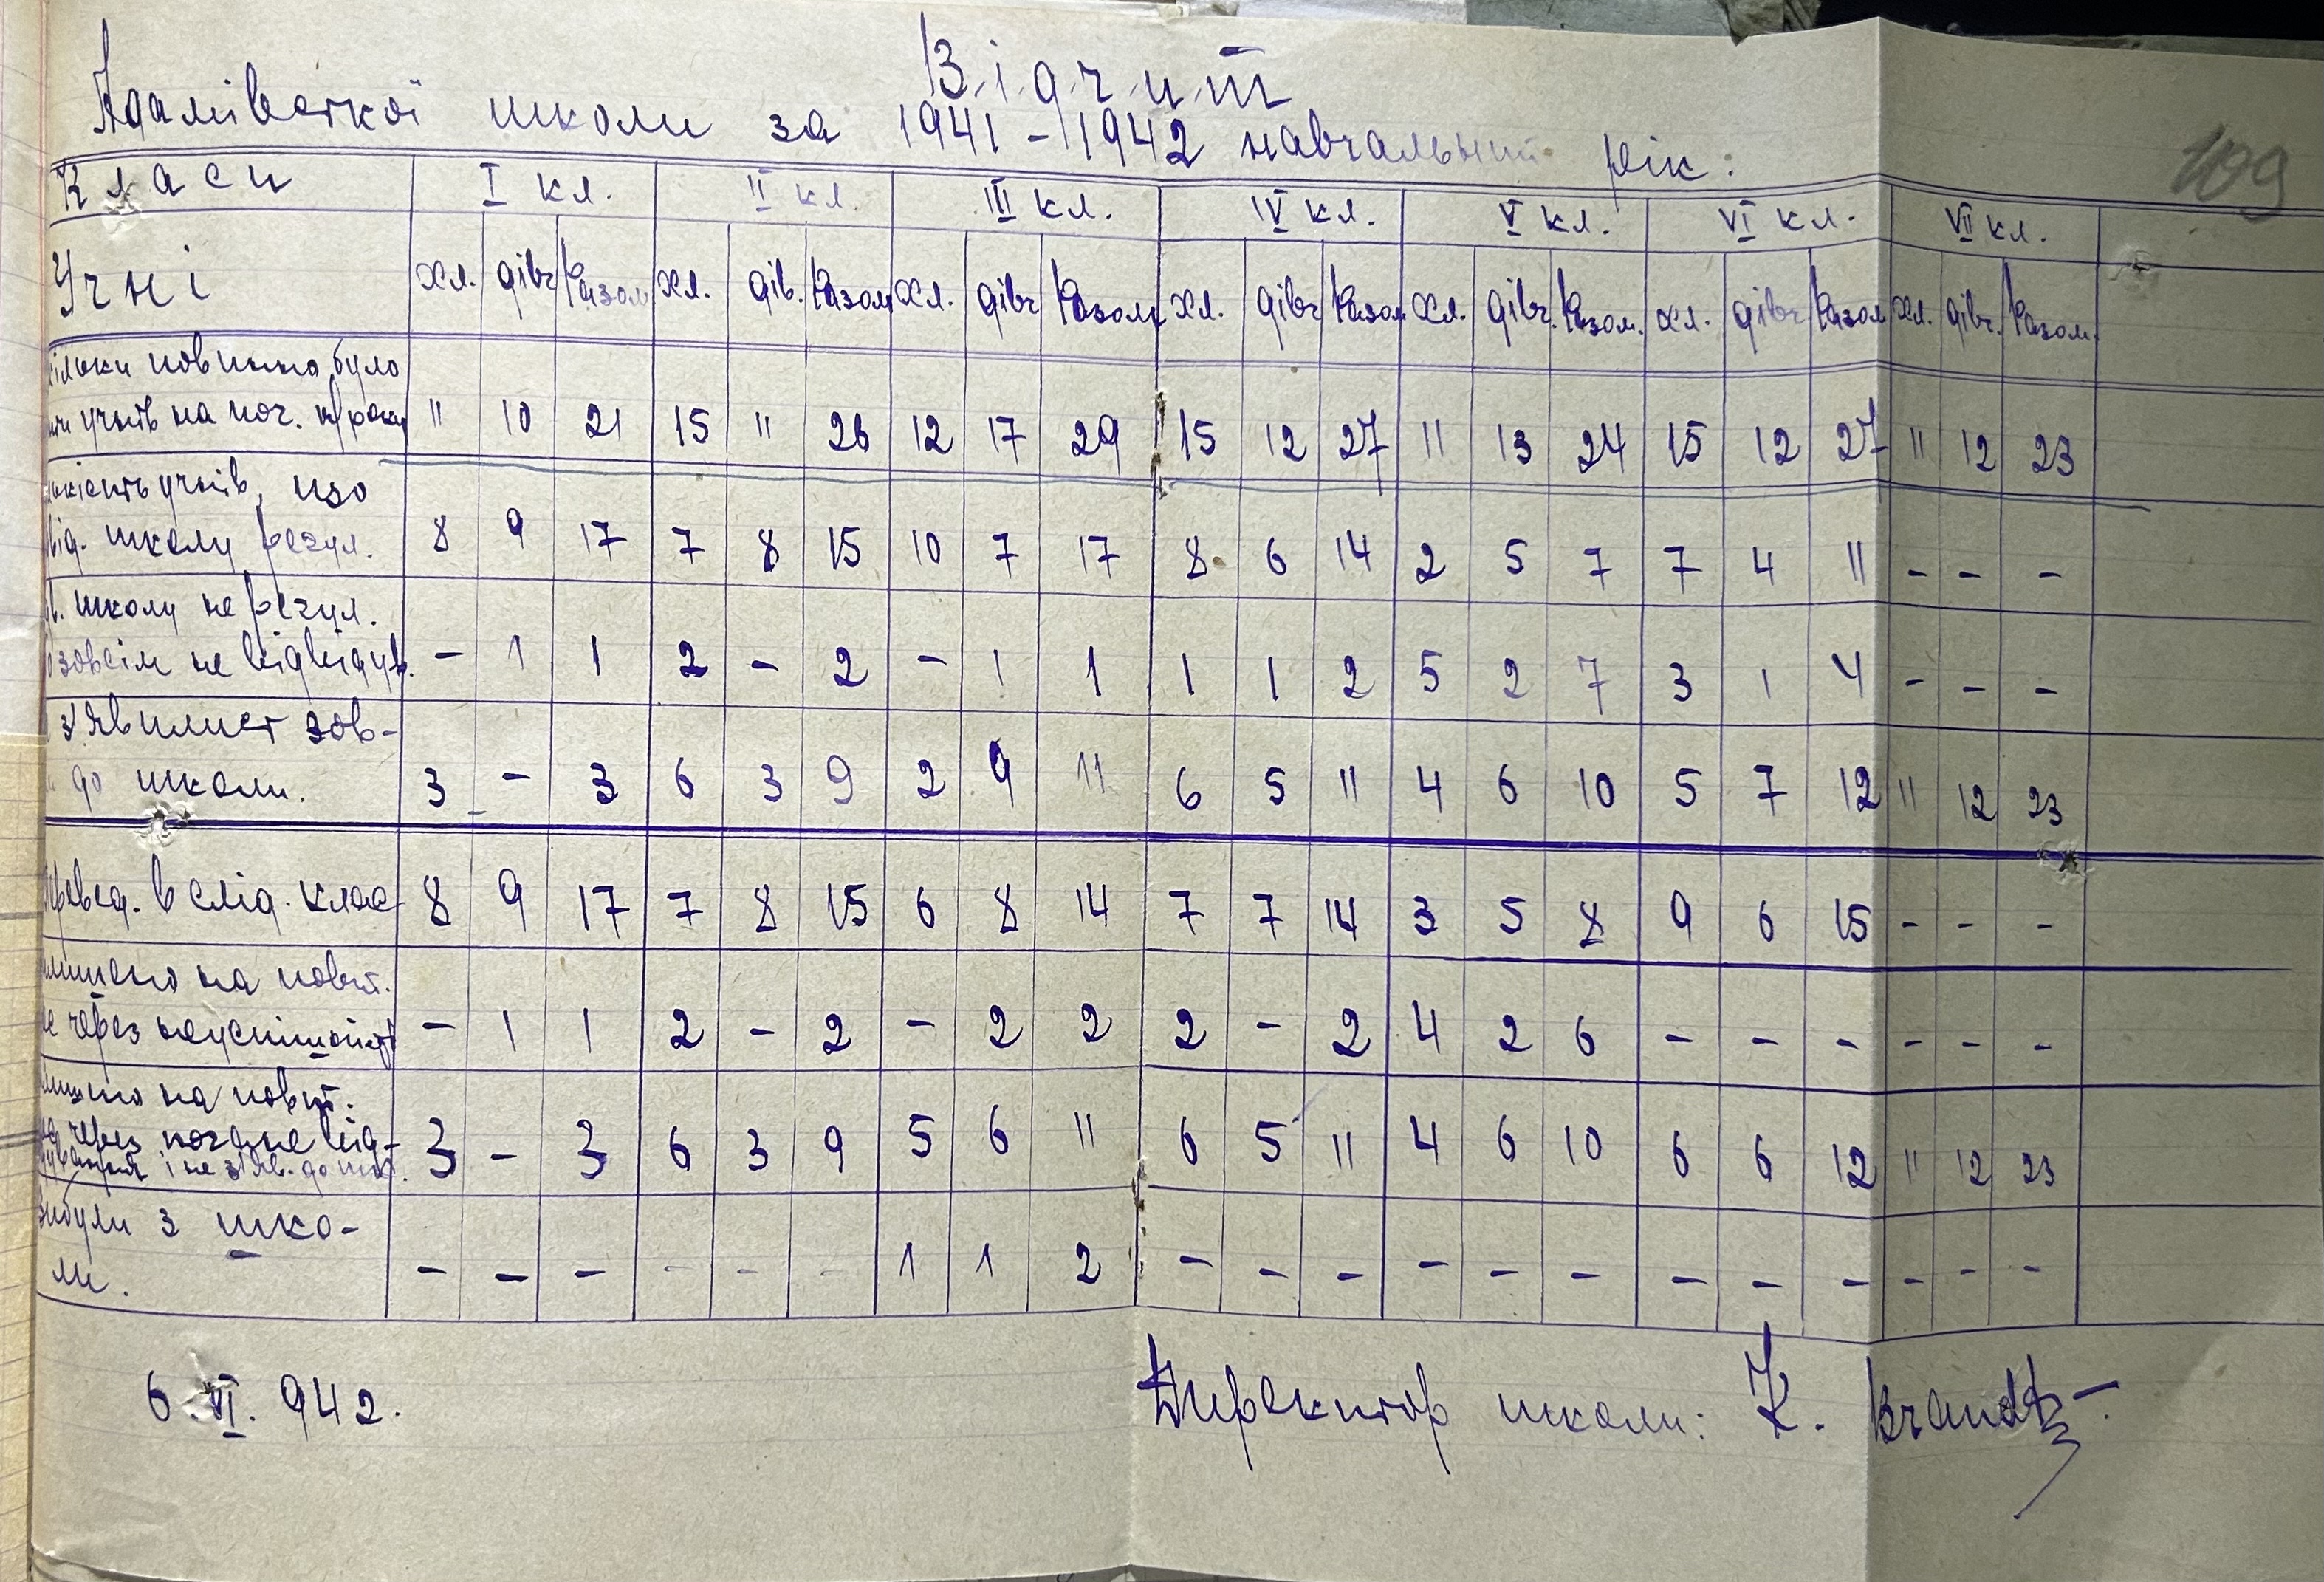 Відчит
Адамівської школи за 1941-1942 навчальний рік:
109
Класи I кл. II кл. III кл. IV кл. V кл. VI кл. VII кл.
Учні хл. дівч Разом хл. дів. Разом хл. дівч Разом хл. дівч Разом хл. дівч. Разом. хл. дівч Разом хл. дівч. Разом.
ільки повинно було
учнів на поч. н/року 11 10 21 15 11 26 12 17 29 15 12 27 11 13 24 15 12 27 11 12 23
ькість учнів, що
від. школу регул. 8 9 17 7 8 15 10 7 17 8 6 14 2 5 7 7 4 11 - - -
в. школу не регул.
зовсім не відвідув. - 1 1 2 - 2 - 1 1 1 1 2 5 2 7 3 1 4 - - -
з'явилися зов-
до школи. 3 - 3 6 3 9 2 9 11 6 5 11 4 6 10 5 7 12 11 12 23
ревед. в слід. клас 8 9 17 7 8 15 6 8 14 7 7 14 3 5 8 9 6 15 - - -
лишено на повт.
через неуспішність - 1 1 2 - 2 - 2 2 2 - 2 4 2 6 - - - - - -
лишено на повт.
через погане від-
дування і не з'яв. до шк. 3 - 3 6 3 9 5 6 11 6 5 11 4 6 10 6 6 12 11 12 23
вибули з шко-
ли. - - - - - - 1 1 2 - - - - - - - - - - - -
6.VI.942. Директор школи: K. Brandt